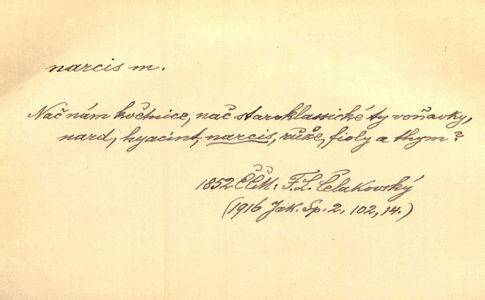 narcis m.
Nač nám kvčtnice, nač staroklassické ty voňavky,
nard, hyacint, narcis, růže, fioly a thym?
1852 ČČM. F. L. Čelakovský
(1916 Jak. Sp. 2, 102, 14.)